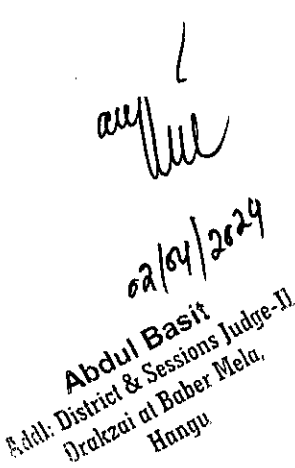 02/04/2024
Abdul Basit
Addl: District & Sessions Judge-II
Orakzai at Baber Mela,
Hangu